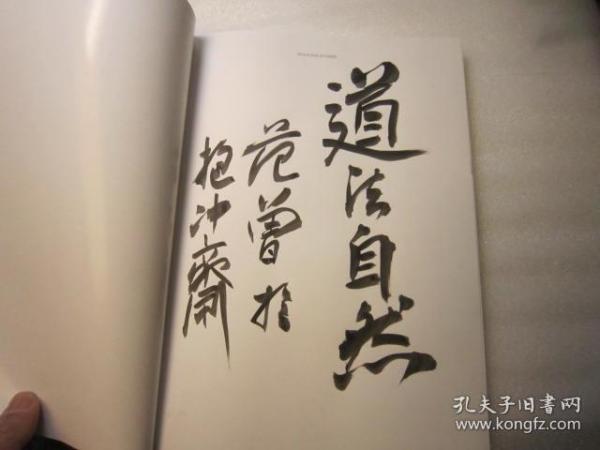 道法自然
范曾於
抱冲齋
孔夫子旧书网
www.kongfz.com